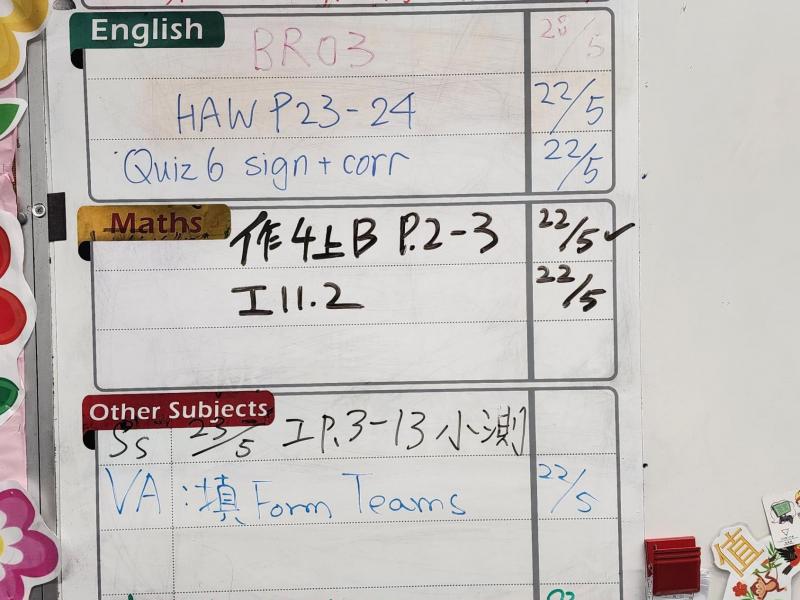 English
BR03 28/5
HAW P23-24 22/5
Quiz 6 sign + corr 22/5
Maths
作4上B P.2-3 22/5 ✓
工11.2 22/5
Other Subjects
SS 23/5 工P.3-13小測
VA:填Form Teams 22/5
值